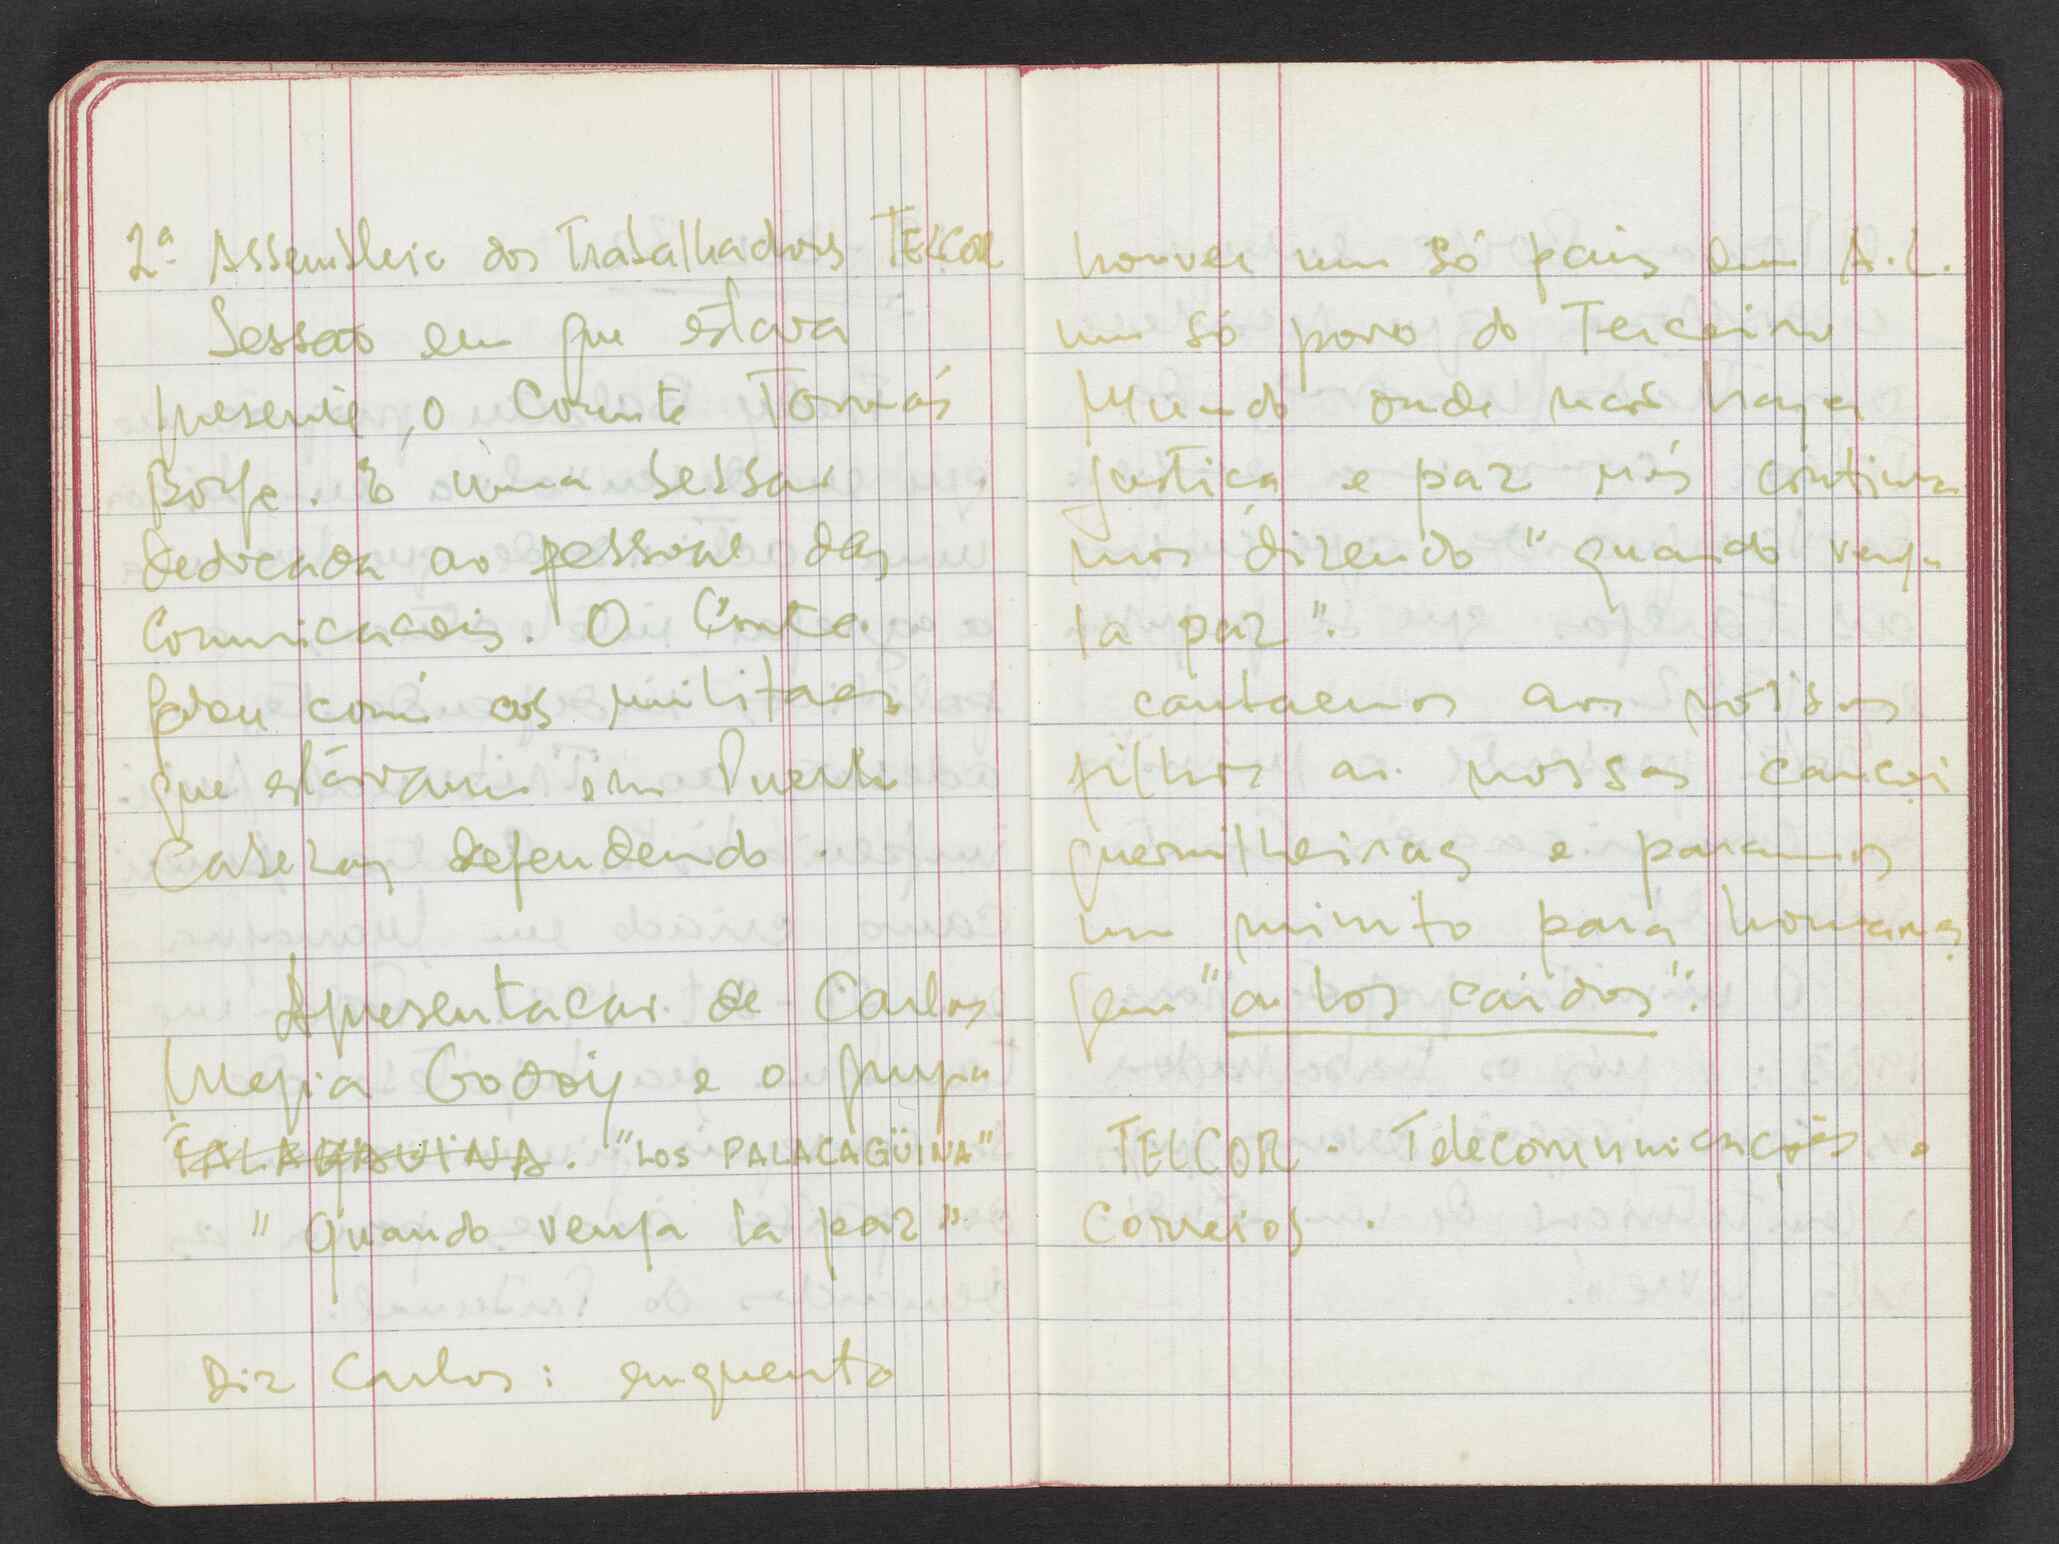 2ª Assembleia dos Trabalhadores TELCOR
Sessão em que estava
presente, o Comte Tomás
Borge. É uma sessão
dedicada ao pessoal das
Comunicações. O Comte.
falou com os militares
que estavam em Puerto
Cabezas defendendo
Apresentação de Carlos
Mejia Godoy e o grupo
"LOS PALACAGÜINA"
"Quando venga la paz"
Diz Carlos: enquanto
houver um só país em A.L.
um só povo do Terceiro
Mundo onde não haja
justiça e paz nós continua
mos dizendo "quando venga
la paz".
cantaremos aos nossos
filhos as nossas canções
guerrilheiras e paramos
um minuto para homena
gem "a los caídos".
TELCOR. Telecomunicações e
Correios.